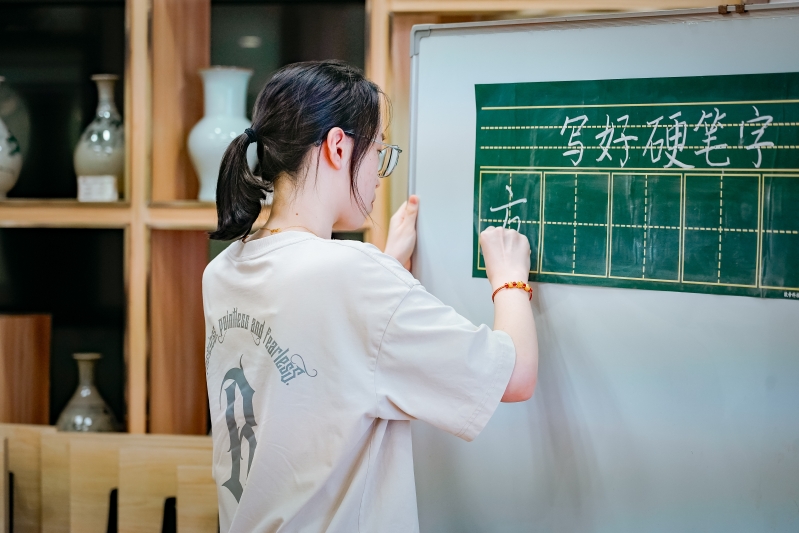 写好硬笔字
pointless and Fearless.
R